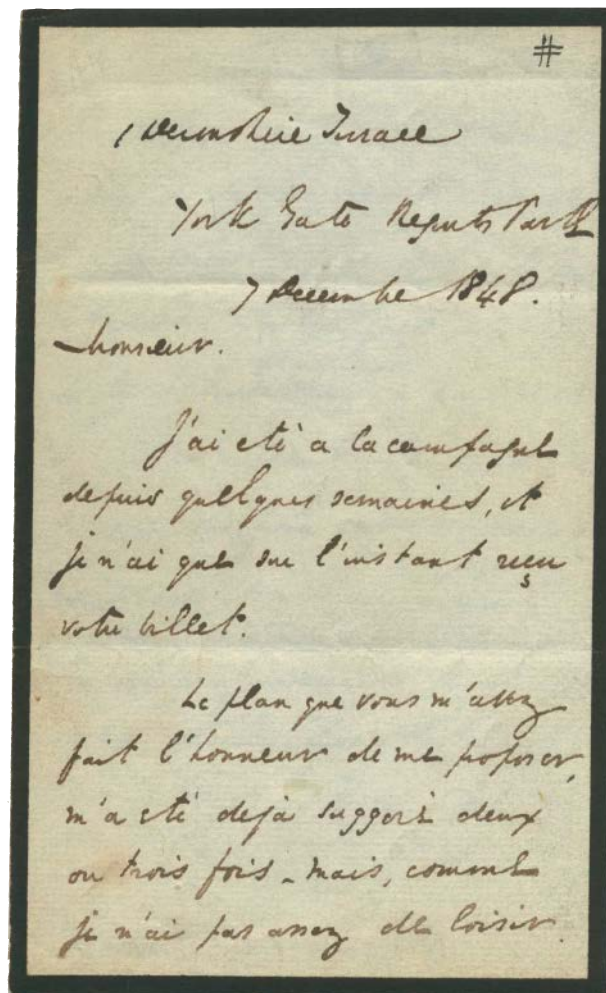 #
1 Devonshire Terrace
York Gate Regents Park
7 Decembre 1848.
Monsieur.
J'ai eté a la campagne
depuis quelques semaines, et
je n'ai que sur l'instant reçu
votre billet.
Le plan que vous m'avez
fait l'honneur de me proposer,
m'a eté dejà suggeré deux
ou trois fois - mais, comme
je n'ai pas assez de loisir